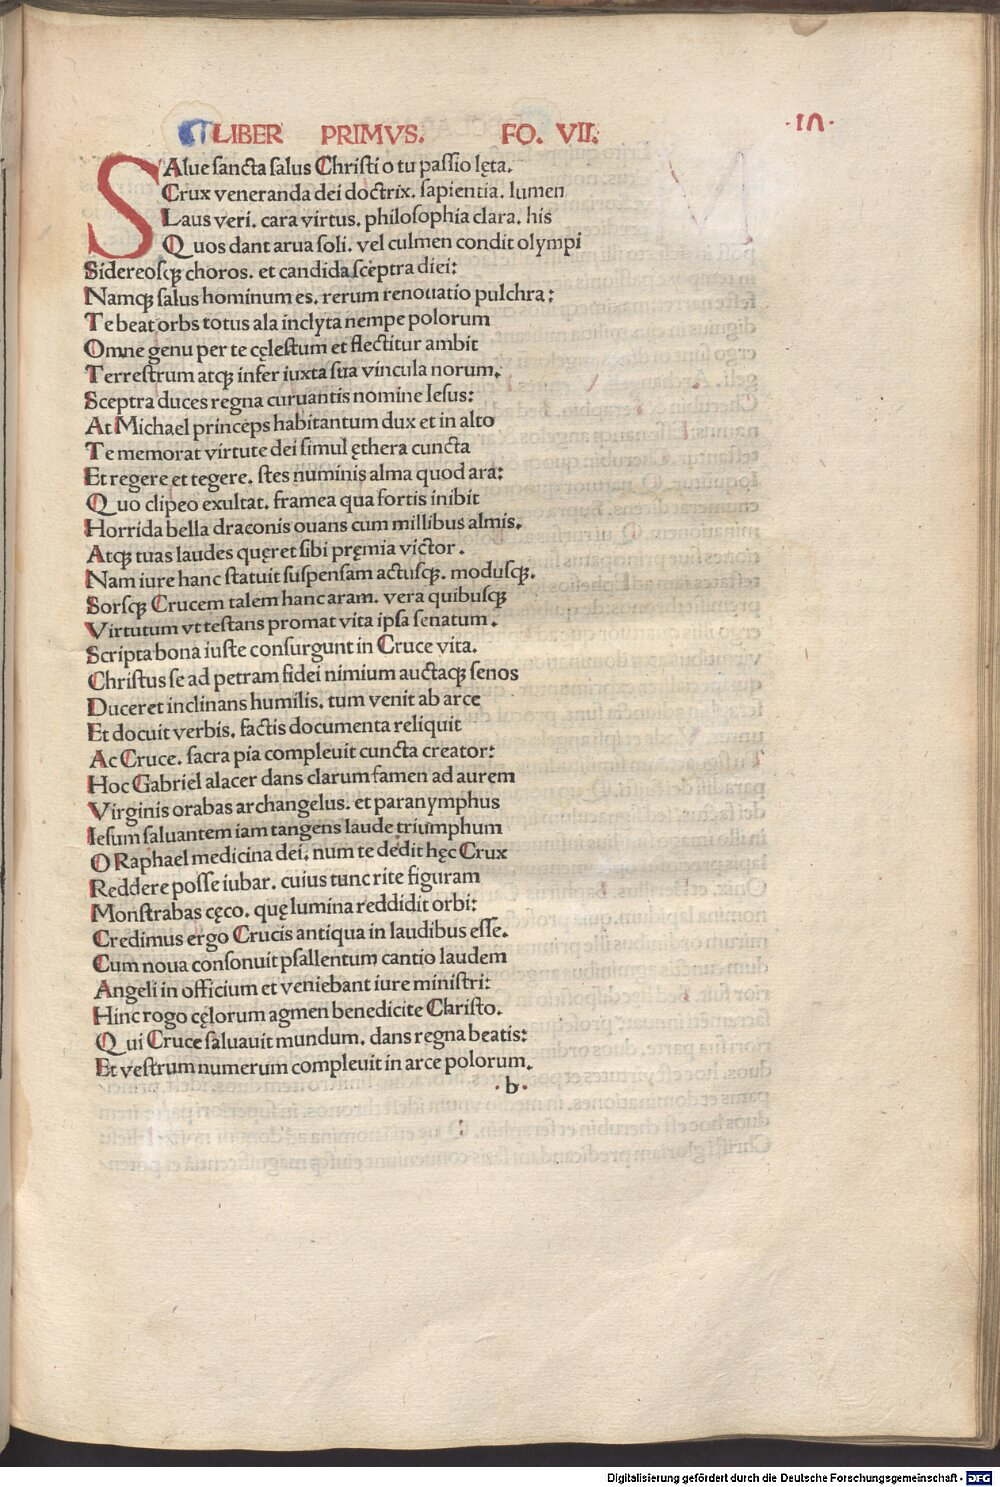 LIBER PRIMVS. FO. VII. ·III·
SAlue sancta salus Christi o tu passio lęta.
Crux veneranda dei doctrix. sapientia. lumen
Laus veri. cara virtus. philosophia clara. his
Quos dant arua soli. vel culmen condit olympi
Sidereosqꝫ choros. et candida sceptra diei:
Namqꝫ salus hominum es. rerum renouatio pulchra:
Te beat orbs totus ala inclyta nempe polorum
Omne genu per te cęlestum et flectitur ambit
Terrestrum atqꝫ infer iuxta sua vincula norum.
Sceptra duces regna curuantis nomine Iesus:
At Michael princeps habitantum dux et in alto
Te memorat virtute dei simul ęthera cuncta
Et regere et tegere. stes numinis alma quod ara:
Quo clipeo exultat. framea qua fortis inibit
Horrida bella draconis ouans cum millibus almis.
Atqꝫ tuas laudes quęret sibi pręmia victor.
Nam iure hanc statuit suspensam actusqꝫ. modusqꝫ.
Sorsqꝫ Crucem talem hanc aram. vera quibusqꝫ
Virtutum vt testans promat vita ipsa senatum.
Scripta bona iuste consurgunt in Cruce vita.
Christus se ad petram fidei nimium auctaqꝫ senos
Duceret inclinans humilis. tum venit ab arce
Et docuit verbis. factis documenta reliquit
Ac Cruce. sacra pia compleuit cuncta creator:
Hoc Gabriel alacer dans clarum famen ad aurem
Virginis orabas archangelus. et paranymphus
Iesum saluantem iam tangens laude triumphum
O Raphael medicina dei. num te dedit hęc Crux
Reddere posse iubar. cuius tunc rite figuram
Monstrabas cęco. quę lumina reddidit orbi:
Credimus ergo Crucis antiqua in laudibus esse.
Cum noua consonuit psallentum cantio laudem
Angeli in officium et veniebant iure ministri:
Hinc rogo cęlorum agmen benedicite Christo.
Qui Cruce saluauit mundum. dans regna beatis:
Et vestrum numerum compleuit in arce polorum.
·b·
Digitalisierung gefördert durch die Deutsche Forschungsgemeinschaft - DFG